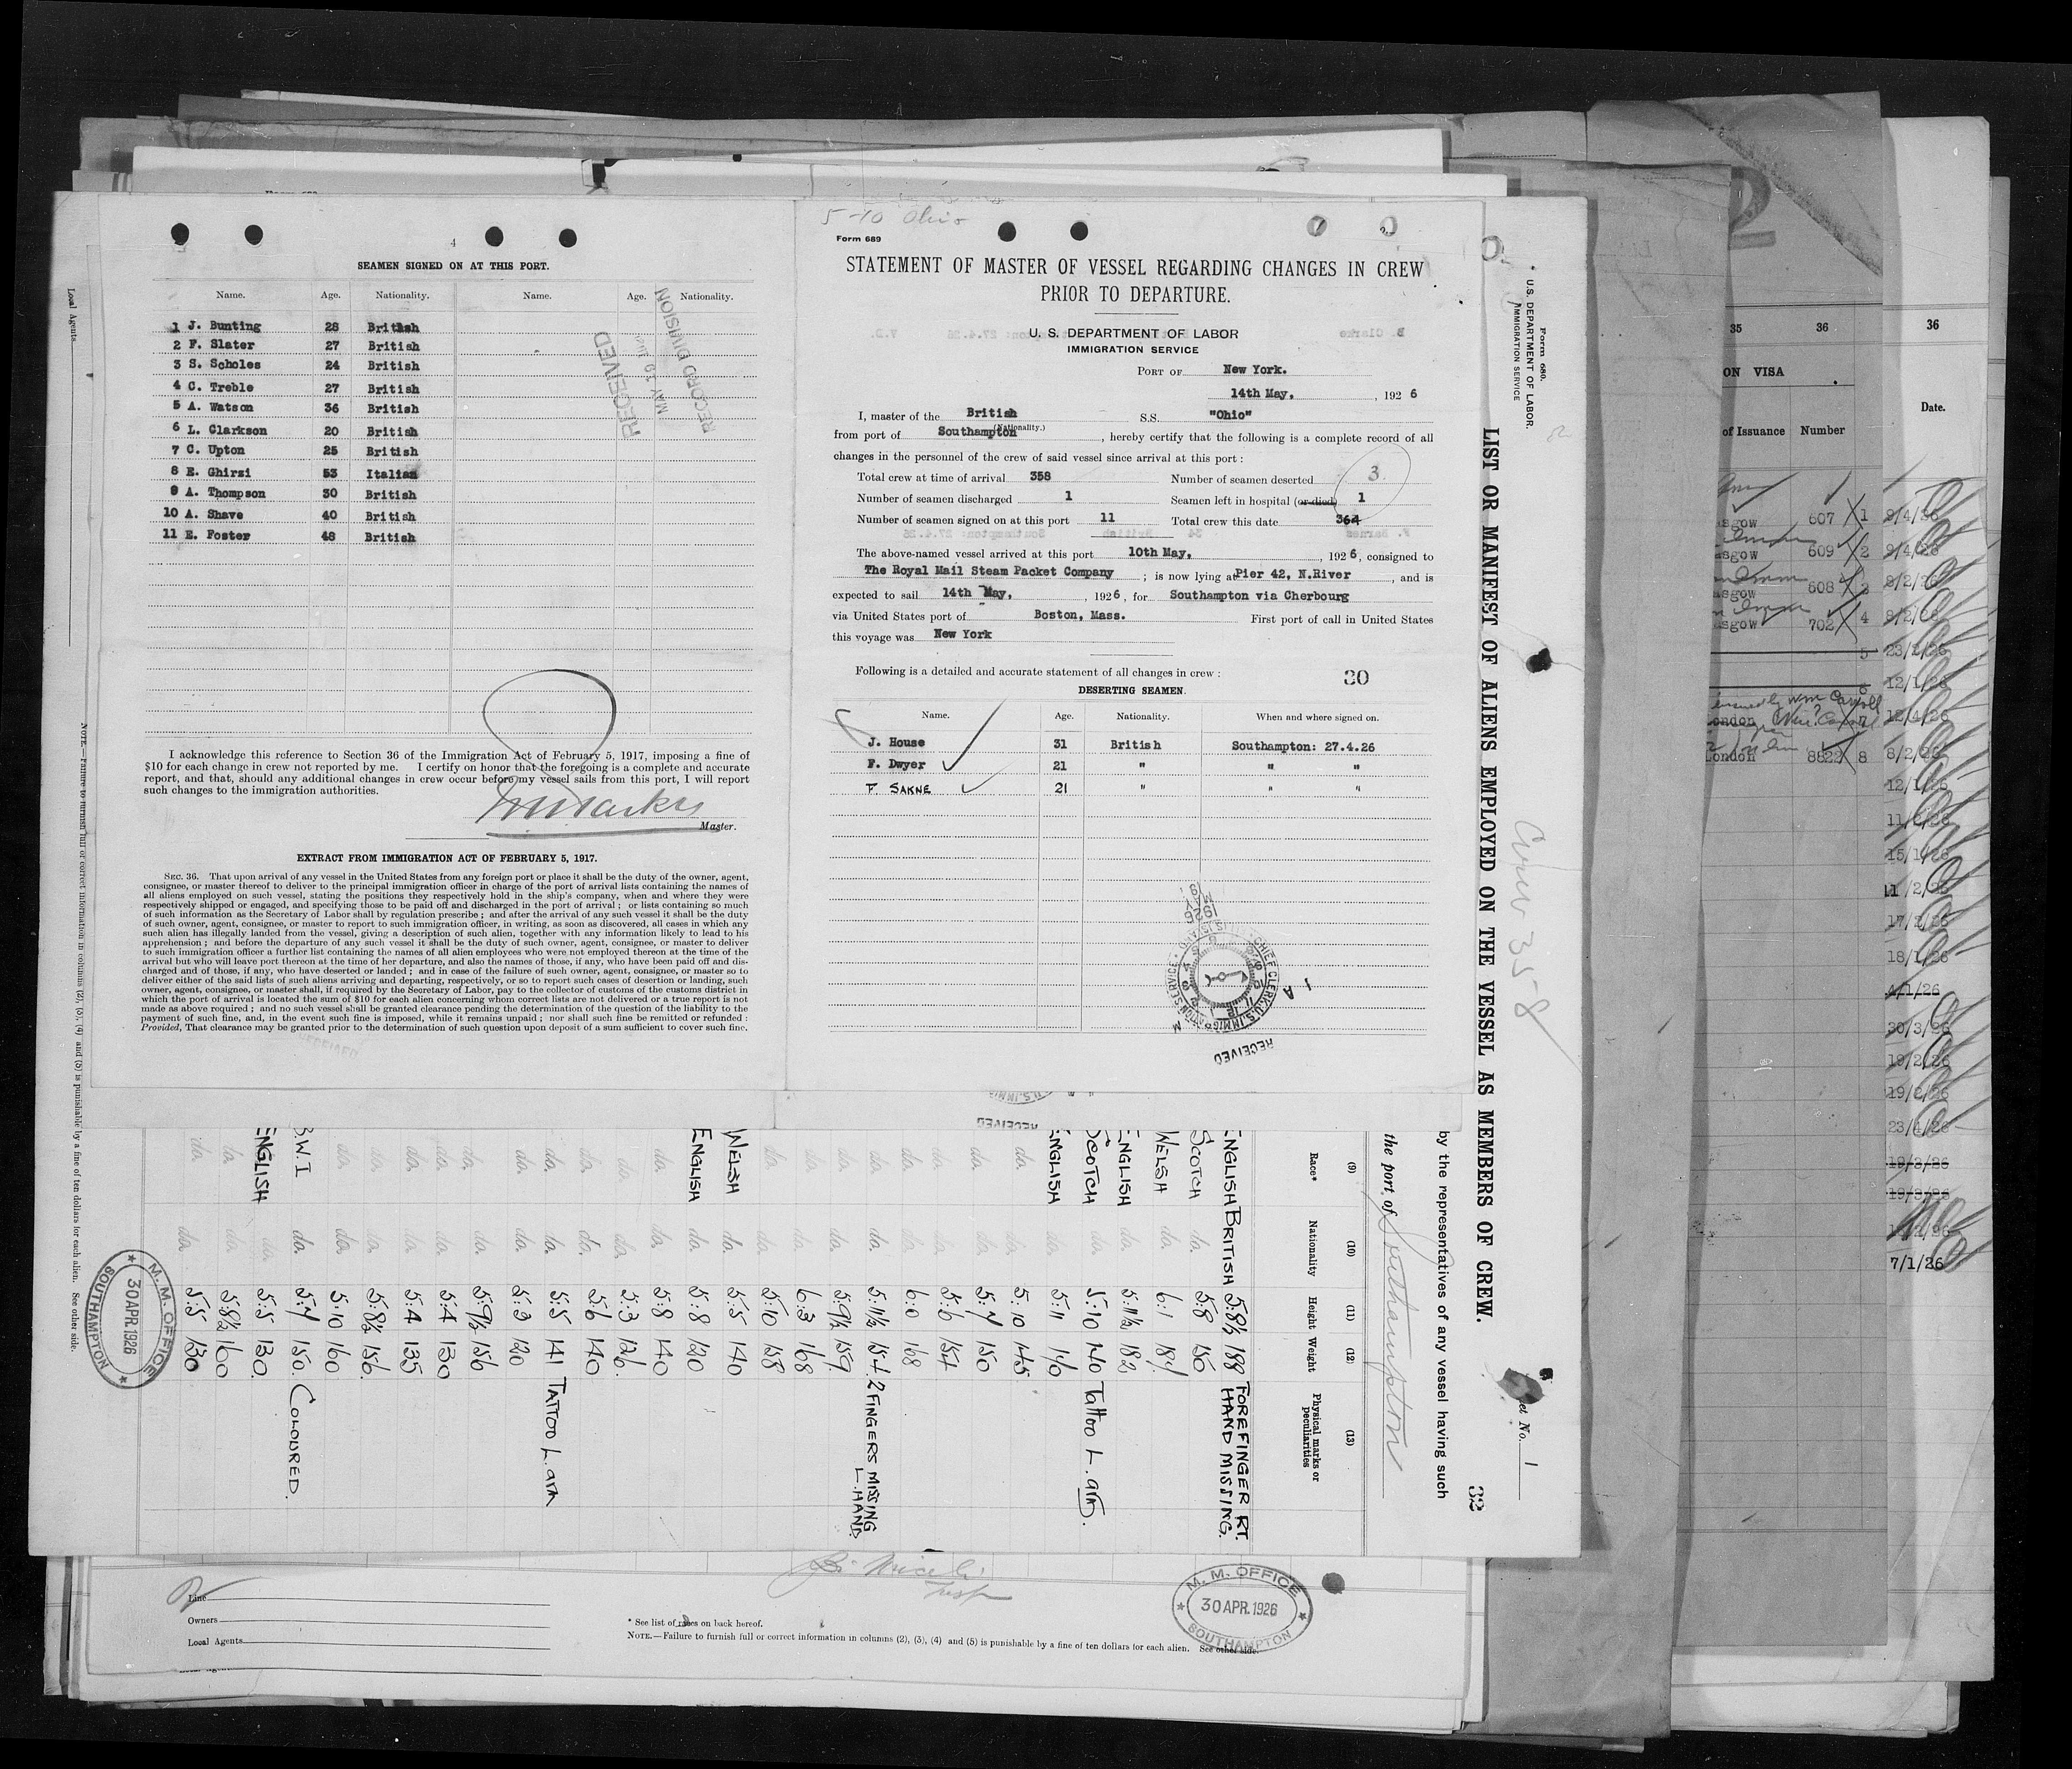 4
SEAMEN SIGNED ON AT THIS PORT.
Name. Age. Nationality. Name. Age. Nationality.
1 J. Bunting 28 British
2 F. Slater 27 British
3 S. Scholes 24 British
4 C. Treble 27 British
5 A. Watson 36 British
6 L. Clarkson 20 British
7 C. Upton 25 British
8 E. Ghirzi 53 Italian
9 A. Thompson 30 British
10 A. Shave 40 British
11 E. Foster 48 British
RECEIVED
MAY 19
RECORD DIVISION
I acknowledge this reference to Section 36 of the Immigration Act of February 5, 1917, imposing a fine of
$10 for each change in crew not reported by me. I certify on honor that the foregoing is a complete and accurate
report, and that, should any additional changes in crew occur before my vessel sails from this port, I will report
such changes to the immigration authorities.
Master.
EXTRACT FROM IMMIGRATION ACT OF FEBRUARY 5, 1917.
SEC. 36. That upon arrival of any vessel in the United States from any foreign port or place it shall be the duty of the owner, agent,
consignee, or master thereof to deliver to the principal immigration officer in charge of the port of arrival lists containing the names of
all aliens employed on such vessel, stating the positions they respectively hold in the ship's company, when and where they were
respectively shipped or engaged, and specifying those to be paid off and discharged in the port of arrival; or lists containing so much
of such information as the Secretary of Labor shall by regulation prescribe; and after the arrival of any such vessel it shall be the duty
of such owner, agent, consignee, or master to report to such immigration officer, in writing, as soon as discovered, all cases in which any
such alien has illegally landed from the vessel, giving a description of such alien, together with any information likely to lead to his
apprehension; and before the departure of any such vessel it shall be the duty of such owner, agent, consignee, or master to deliver
to such immigration officer a further list containing the names of all alien employees who were not employed thereon at the time of the
arrival but who will leave port thereon at the time of her departure, and also the names of those, if any, who have been paid off and dis-
charged and of those, if any, who have deserted or landed; and in case of the failure of such owner, agent, consignee, or master so to
deliver either of the said lists of such aliens arriving and departing, respectively, or so to report such cases of desertion or landing, such
owner, agent, consignee, or master shall, if required by the Secretary of Labor, pay to the collector of customs of the customs district in
which the port of arrival is located the sum of $10 for each alien concerning whom correct lists are not delivered or a true report is not
made as above required; and no such vessel shall be granted clearance pending the determination of the question of the liability to the
payment of such fine, and, in the event such fine is imposed, while it remains unpaid; nor shall such fine be remitted or refunded:
Provided, That clearance may be granted prior to the determination of such question upon deposit of a sum sufficient to cover such fine.
RECEIVED
5-10 Ohio
Form 689
STATEMENT OF MASTER OF VESSEL REGARDING CHANGES IN CREW
PRIOR TO DEPARTURE.
U. S. DEPARTMENT OF LABOR
IMMIGRATION SERVICE
PORT OF New York.
14th May, , 192 6
I, master of the British S.S. "Ohio"
(Nationality.)
from port of Southampton , hereby certify that the following is a complete record of all
changes in the personnel of the crew of said vessel since arrival at this port:
Total crew at time of arrival 358 Number of seamen deserted 3
Number of seamen discharged 1 Seamen left in hospital (or died) 1
Number of seamen signed on at this port 11 Total crew this date 364
The above-named vessel arrived at this port 10th May, , 192 6, consigned to
The Royal Mail Steam Packet Company ; is now lying at Pier 42, N.River , and is
expected to sail 14th May, , 192 6, for Southampton via Cherbourg
via United States port of Boston, Mass. First port of call in United States
this voyage was New York
Following is a detailed and accurate statement of all changes in crew:
30
DESERTING SEAMEN.
Name. Age. Nationality. When and where signed on.
J. House 31 British Southampton: 27.4.26
F. Dwyer 21 " " "
F SAKNE 21 " " "
CHIEF CLERK, U.S. IMMIGRATION SERVICE
RECEIVED
Form 680.
U.S. DEPARTMENT OF LABOR.
IMMIGRATION SERVICE
LIST OR MANIFEST OF ALIENS EMPLOYED ON THE VESSEL AS MEMBERS OF CREW.
Crew 358
No. 1
32
by the representatives of any vessel having such
the port of Southampton
(9) (10) (11) (12) (13)
Race* Nationality Height Weight Physical marks or peculiarities
ENGLISH BRITISH 5:8½ 188 FOREFINGER RT. HAND MISSING.
SCOTCH do. 5:8 150
WELSH do. 6:1 187
ENGLISH do. 5:11½ 182
SCOTCH do. 5:10 140 Tattoo L. arm.
ENGLISH 5:11 170
do. do. 5:10 145
do. do. 5:7 150
do. 5:6 154
do. do. 6:0 168
do. do. 5:11½ 154 2 FINGERS MISSING L. HAND
do. do. 5:9½ 159
do. do. 6:3 168
do. do. 5:10 158
WELSH do. 5:5 140
ENGLISH do. 5:8 120
do. do. 5:8 140
do. do. 5:3 126.
do. do. 5:6 140
do. do. 5:5 141 TATTOO L. arm
do. do. 5:3 120
do. do. 5:9½ 156
do. do. 5:4 130
do. do. 5:4 135
do. do. 5:8½ 156.
do. do. 5:10 160
B.W.I do. 5:7 150. COLOURED.
ENGLISH do. 5:5 130.
do. do. 5:8½ 160
do. do. 5:5 130
M. M. OFFICE
30 APR. 1926
SOUTHAMPTON
Local Agents
NOTE.—Failure to furnish full or correct information in columns (2), (3), (4) and (5) is punishable by a fine of ten dollars for each alien. See other side.
Line
Owners
Local Agents
* See list of races on back hereof.
NOTE.—Failure to furnish full or correct information in columns (2), (3), (4) and (5) is punishable by a fine of ten dollars for each alien. See other side.
M. M. OFFICE
30 APR. 1926
SOUTHAMPTON
2
35 36
ON VISA
of Issuance Number
sgow 607 1
sgow 609 2
sgow 608 3
sgow 702 4
5
London 7
London 8822 8
36
Date.
9/4/26
9/4/26
9/2/26
8/2/26
23/2/26
12/1/26
12/4/26
8/2/26
12/1/26
11/2/26
15/1/26
11/2/26
17/2/26
18/1/26
4/1/26
30/3/26
19/2/26
19/2/26
23/4/26
19/3/26
19/3/26
7/1/26